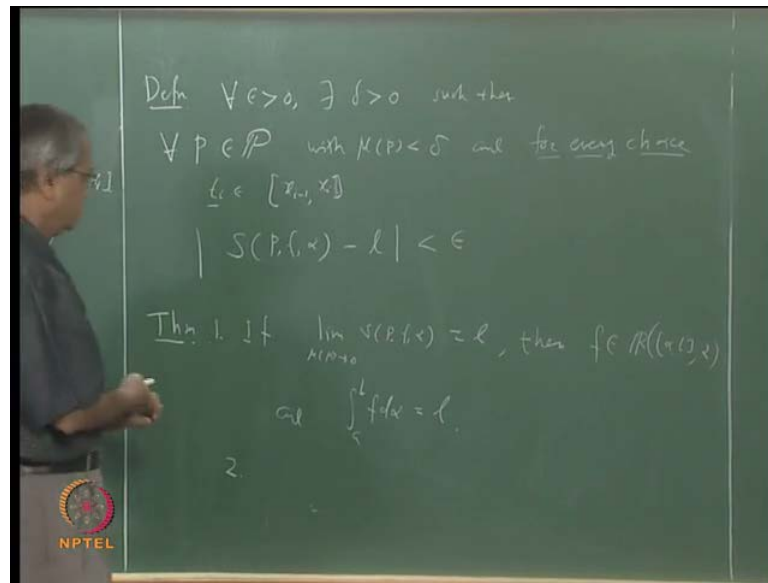 Defn ∀ ε>0, ∃ δ>0 such that
∀ P ∈ ℙ with μ(P) < δ and for every choice
tᵢ ∈ [xᵢ₋₁, xᵢ]
xᵢ]
| S(P, f, α) − l | < ε
Thm 1. If lim S(P, f, α) = l, then f ∈ R([a, b], α)
μ(P)→0
and ∫ₐᵇ f dα = l.
2.
NPTEL